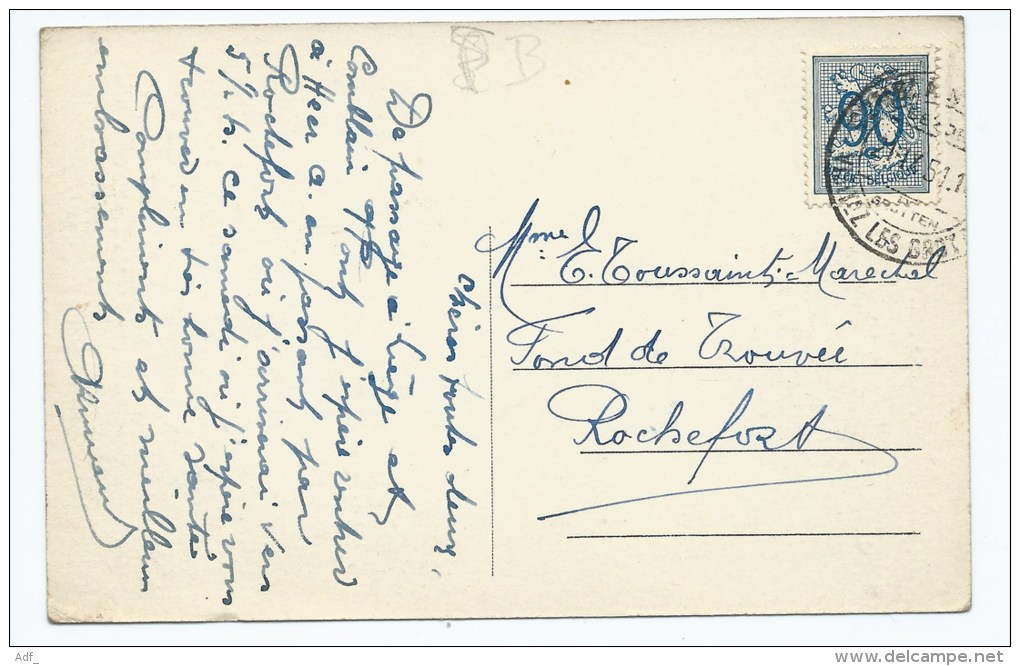 Chères toutes deux,
De passage à Liège et
Comblain j'espère rentrer
à Heer a. en passant par
Rochefort où j'arriverai vers
5 1/2 h. ce samedi où j'espère vous
trouver en très bonne santé
Compliments et meilleurs
embrassements
B
90
BELGIQUE
GROTTEN
Mme E. Toussaint-Marechal
Fond de Trouvée
Rochefort
Adf_
delcampe.net